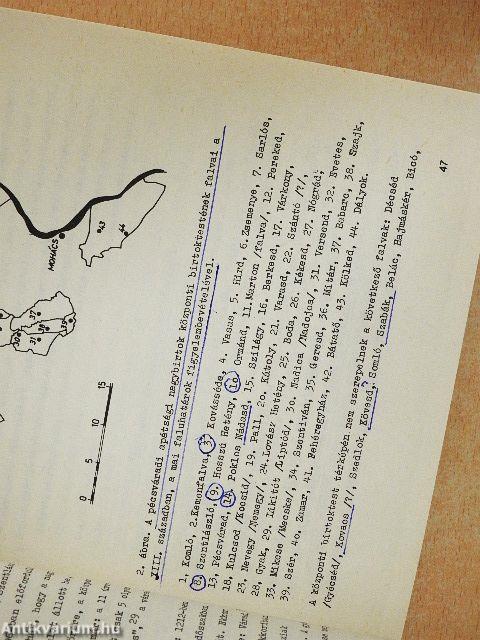 MOHÁCS
43
44
37
38
31
0 5 10 15
2. ábra. A pécsváradi apátsági nagybirtok központi birtoktestének falvai a
XIII. században, a mai faluhatárok figyelembevételével.
1, Komló, 2.Kemonfalva, 3. Kovásséde, 4. Vasus, 5. Hird, 6.Zsemenye, 7. Sarlós,
8. Szentlászló, 9. Hosszú Hetény, 10. Ormánd, 11.Marton /falva/, 12. Pereked,
13, Pécsvárad, 14. Poklos Nádasd, 15. Szilágy, 16. Berkesd, 17. Várkony,
18, Kulcsod /Kocsid/, 19. Pall, 20. Kátoly, 21. Varasd, 22. Szántó /?/,
23, Nevegy /Nemegy/, 24.Lovász Hetény, 25. Boda, 26. Kékesd, 27. Nógrád,
28, Gyak, 29. Likitót /Liptód/, 30. Nadica /Nadojca/, 31. Versend, 32. Evetes,
33. Mikcse /Mecske/, 34. Szentiván, 35. Geresd, 36. Mitár, 37. Babarc, 38. Szajk,
39. Szér, 40. Zamar, 41. Fehéregyház, 42. Bátafő, 43. Kölked, 44. Dályok.
A központi birtoktest térképén nem szerepelnek a következő falvak: Décséd
/Gyécséd/, Kovács /?/, Szedlok, Kövesd, Somló, Szabák, Belác, Hajmáskér, Bicó,
47
Antikvárium.hu